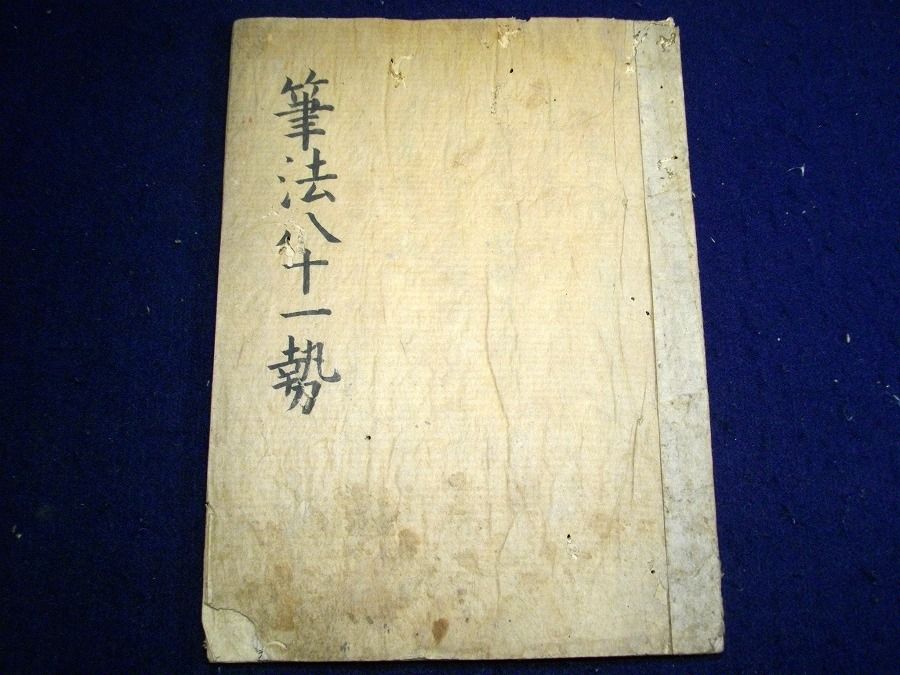 筆法八十一勢